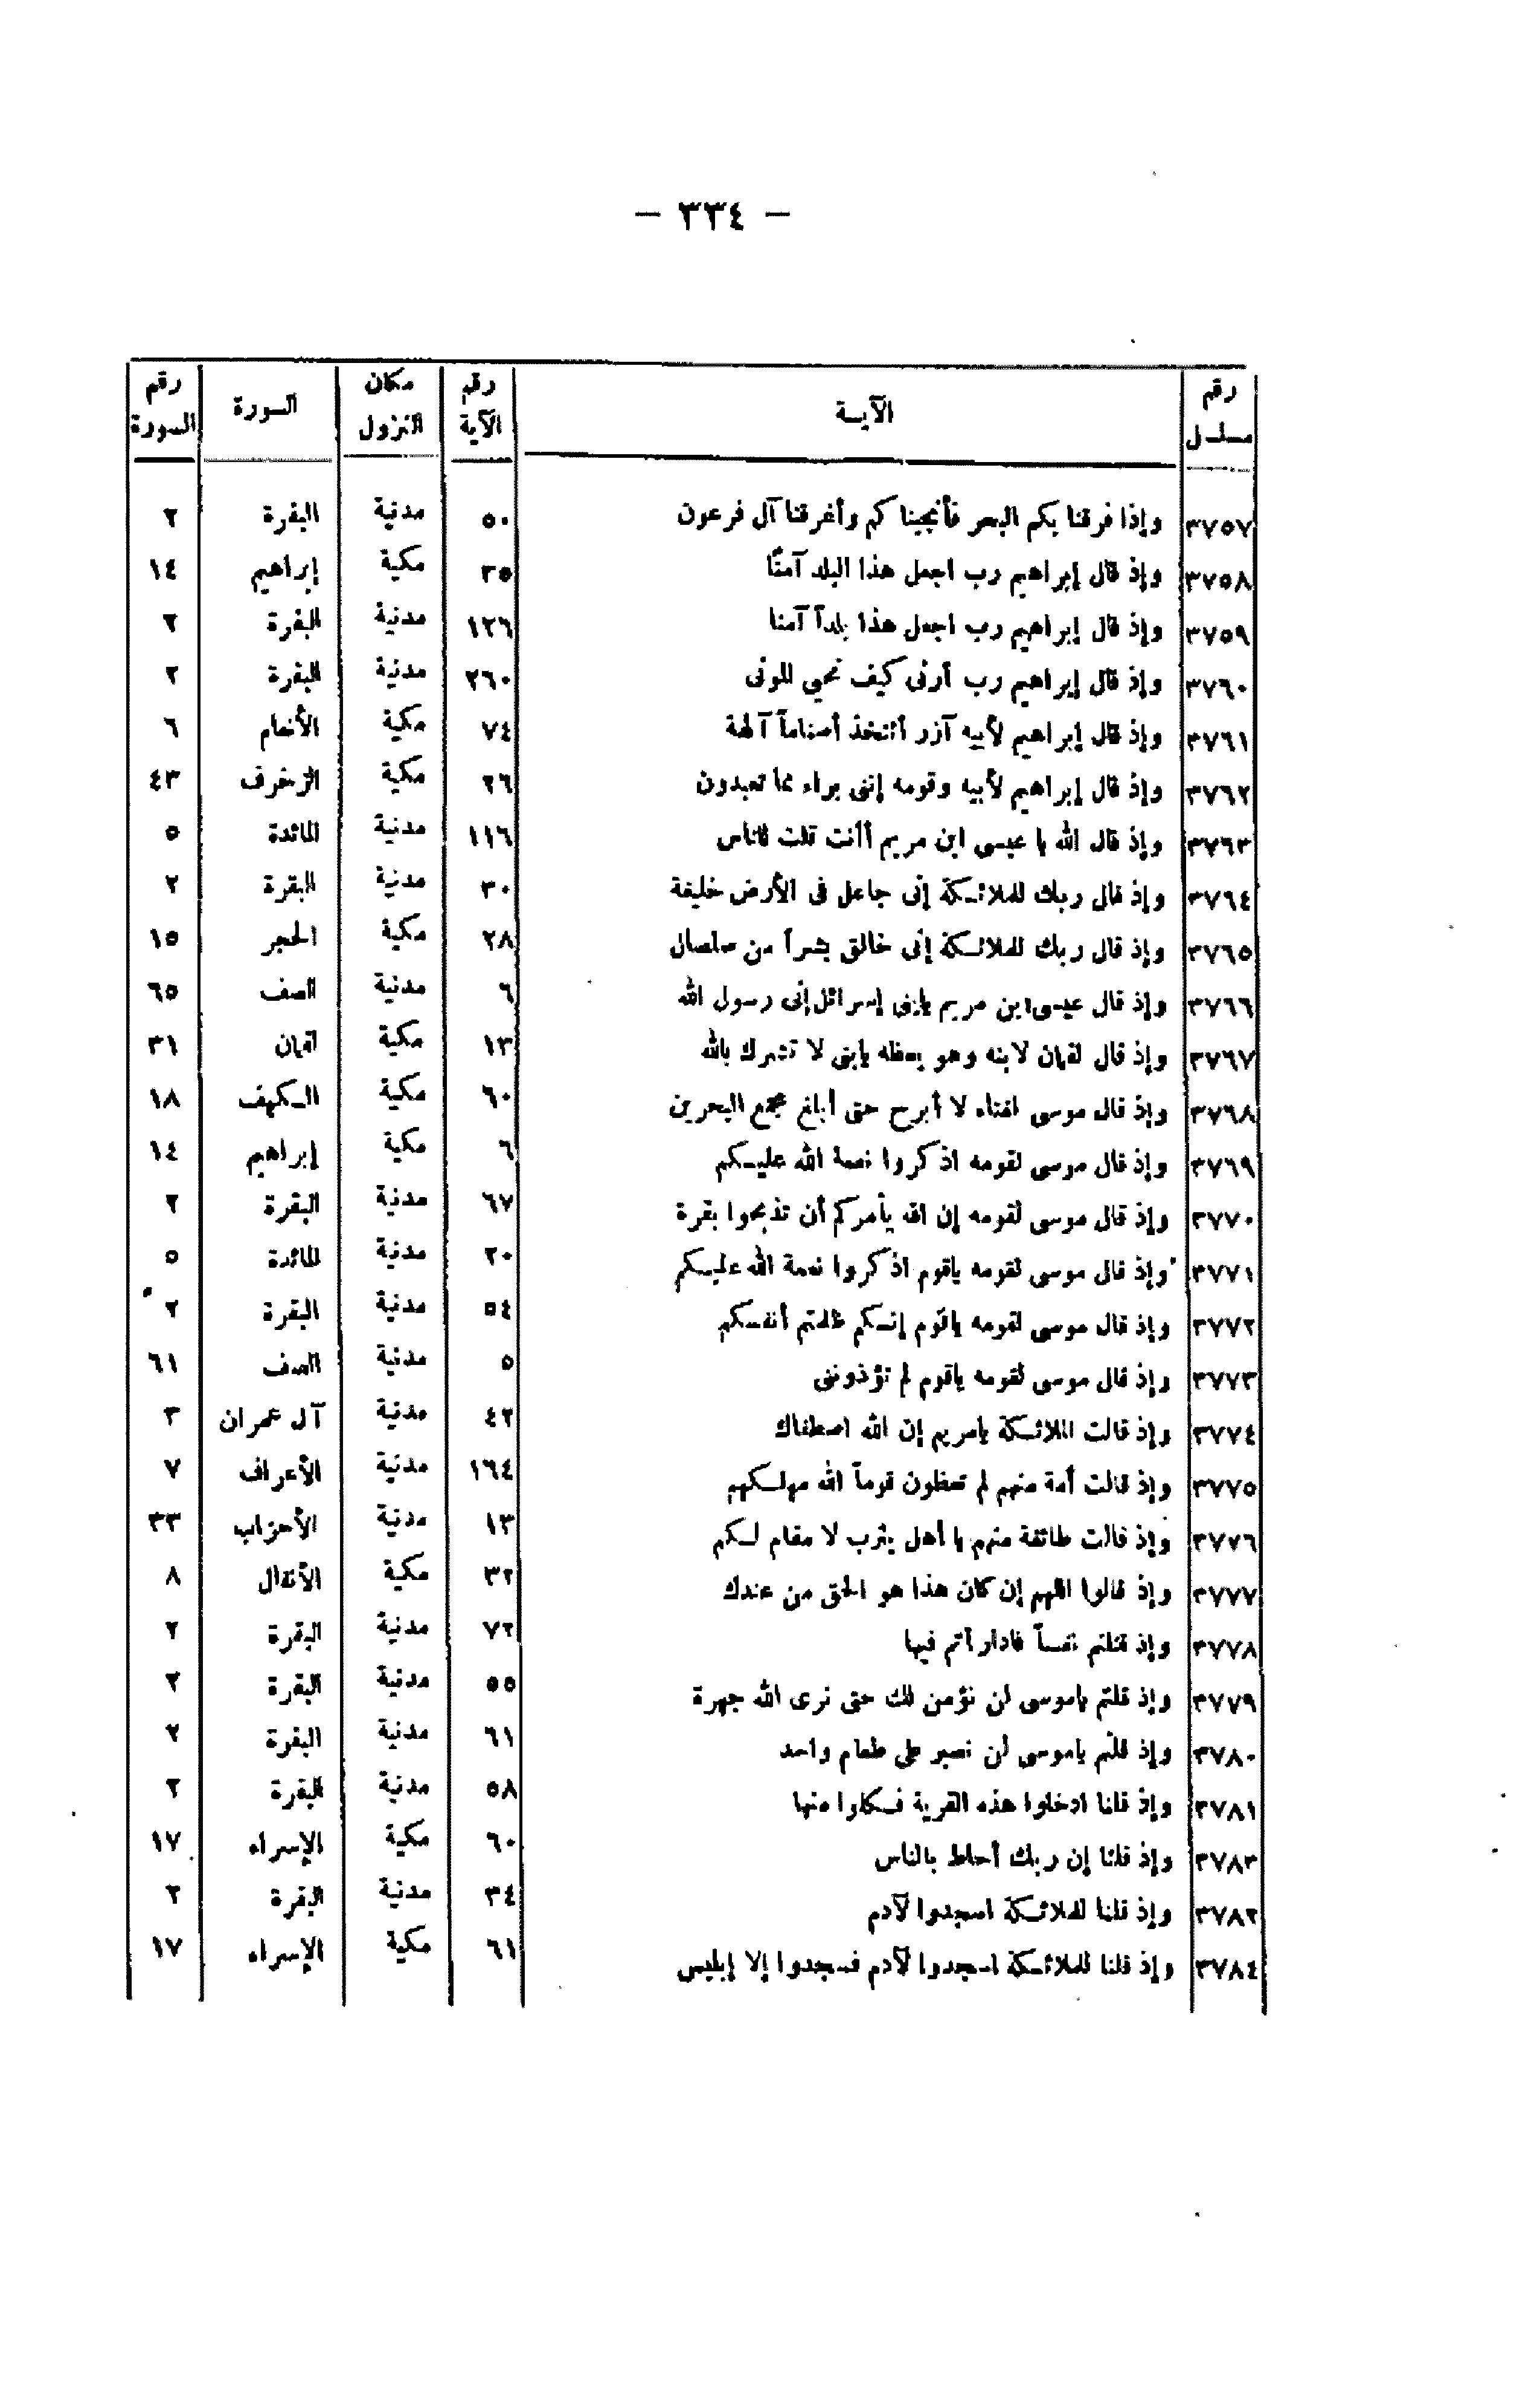 — ٣٣٤ —
رقم مسلسل | الآيـــة | رقم الآية | مكان النزول | السورة | رقم السورة
٣٧٥٧ | وإذا فرقنا بكم البحر فأنجيناكم وأغرقنا آل فرعون | ٥٠ | مدنية | البقرة | ٢
٣٧٥٨ | وإذ قال إبراهيم رب اجعل هذا البلد آمنًا | ٣٥ | مكية | إبراهيم | ١٤
٣٧٥٩ | وإذ قال إبراهيم رب اجعل هذا بلداً آمنا | ١٢٦ | مدنية | البقرة | ٢
٣٧٦٠ | وإذ قال إبراهيم رب أرنى كيف تحي الموتى | ٢٦٠ | مدنية | البقرة | ٢
٣٧٦١ | وإذ قال إبراهيم لأبيه آزر أتتخذ أصناماً آلهة | ٧٤ | مكية | الأنعام | ٦
٣٧٦٢ | وإذ قال إبراهيم لأبيه وقومه إننى براء مما تعبدون | ٢٦ | مكية | الزخرف | ٤٣
٣٧٦٣ | وإذ قال الله يا عيسى ابن مريم أأنت قلت للناس | ١١٦ | مدنية | المائدة | ٥
٣٧٦٤ | وإذ قال ربك للملائكة إنى جاعل فى الأرض خليفة | ٣٠ | مدنية | البقرة | ٢
٣٧٦٥ | وإذ قال ربك للملائكة إنى خالق بشراً من صلصال | ٢٨ | مكية | الحجر | ١٥
٣٧٦٦ | وإذ قال عيسى ابن مريم يابنى إسرائل إنى رسول الله | ٦ | مدنية | الصف | ٦٥
٣٧٦٧ | وإذ قال لقمان لابنه وهو يعظه يابنى لا تشرك بالله | ١٣ | مكية | لقمان | ٣١
٣٧٦٨ | وإذ قال موسى لفتاه لا أبرح حتى أبلغ مجمع البحرين | ٦٠ | مكية | الكهف | ١٨
٣٧٦٩ | وإذ قال موسى لقومه اذكروا نعمة الله عليكم | ٦ | مكية | إبراهيم | ١٤
٣٧٧٠ | وإذ قال موسى لقومه إن الله يأمركم أن تذبحوا بقرة | ٦٧ | مدنية | البقرة | ٢
٣٧٧١ | وإذ قال موسى لقومه ياقوم اذكروا نعمة الله عليكم | ٢٠ | مدنية | المائدة | ٥
٣٧٧٢ | وإذ قال موسى لقومه ياقوم إنكم ظلمتم أنفسكم | ٥٤ | مدنية | البقرة | ٢
٣٧٧٣ | وإذ قال موسى لقومه ياقوم لم تؤذوننى | ٥ | مدنية | الصف | ٦١
٣٧٧٤ | وإذ قالت الملائكة يامريم إن الله اصطفاك | ٤٢ | مدنية | آل عمران | ٣
٣٧٧٥ | وإذ قالت أمة منهم لم تعظون قوماً الله مهلكهم | ١٦٤ | مدنية | الأعراف | ٧
٣٧٧٦ | وإذ قالت طائفة منهم يا أهل يثرب لا مقام لكم | ١٣ | مدنية | الأحزاب | ٣٣
٣٧٧٧ | وإذ قالوا اللهم إن كان هذا هو الحق من عندك | ٣٢ | مكية | الأنفال | ٨
٣٧٧٨ | وإذ قتلتم نفساً فادارأتم فيها | ٧٢ | مدنية | البقرة | ٢
٣٧٧٩ | وإذ قلتم ياموسى لن نؤمن لك حتى نرى الله جهرة | ٥٥ | مدنية | البقرة | ٢
٣٧٨٠ | وإذ قلتم ياموسى لن نصبر على طعام واحد | ٦١ | مدنية | البقرة | ٢
٣٧٨١ | وإذ قلنا ادخلوا هذه القرية فكلوا منها | ٥٨ | مدنية | البقرة | ٢
٣٧٨٣ | وإذ قلنا إن ربك أحاط بالناس | ٦٠ | مكية | الإسراء | ١٧
٣٧٨٢ | وإذ قلنا للملائكة اسجدوا لآدم | ٣٤ | مدنية | البقرة | ٢
٣٧٨٤ | وإذ قلنا للملائكة اسجدوا لآدم فسجدوا إلا إبليس | ٦١ | مكية | الإسراء | ١٧